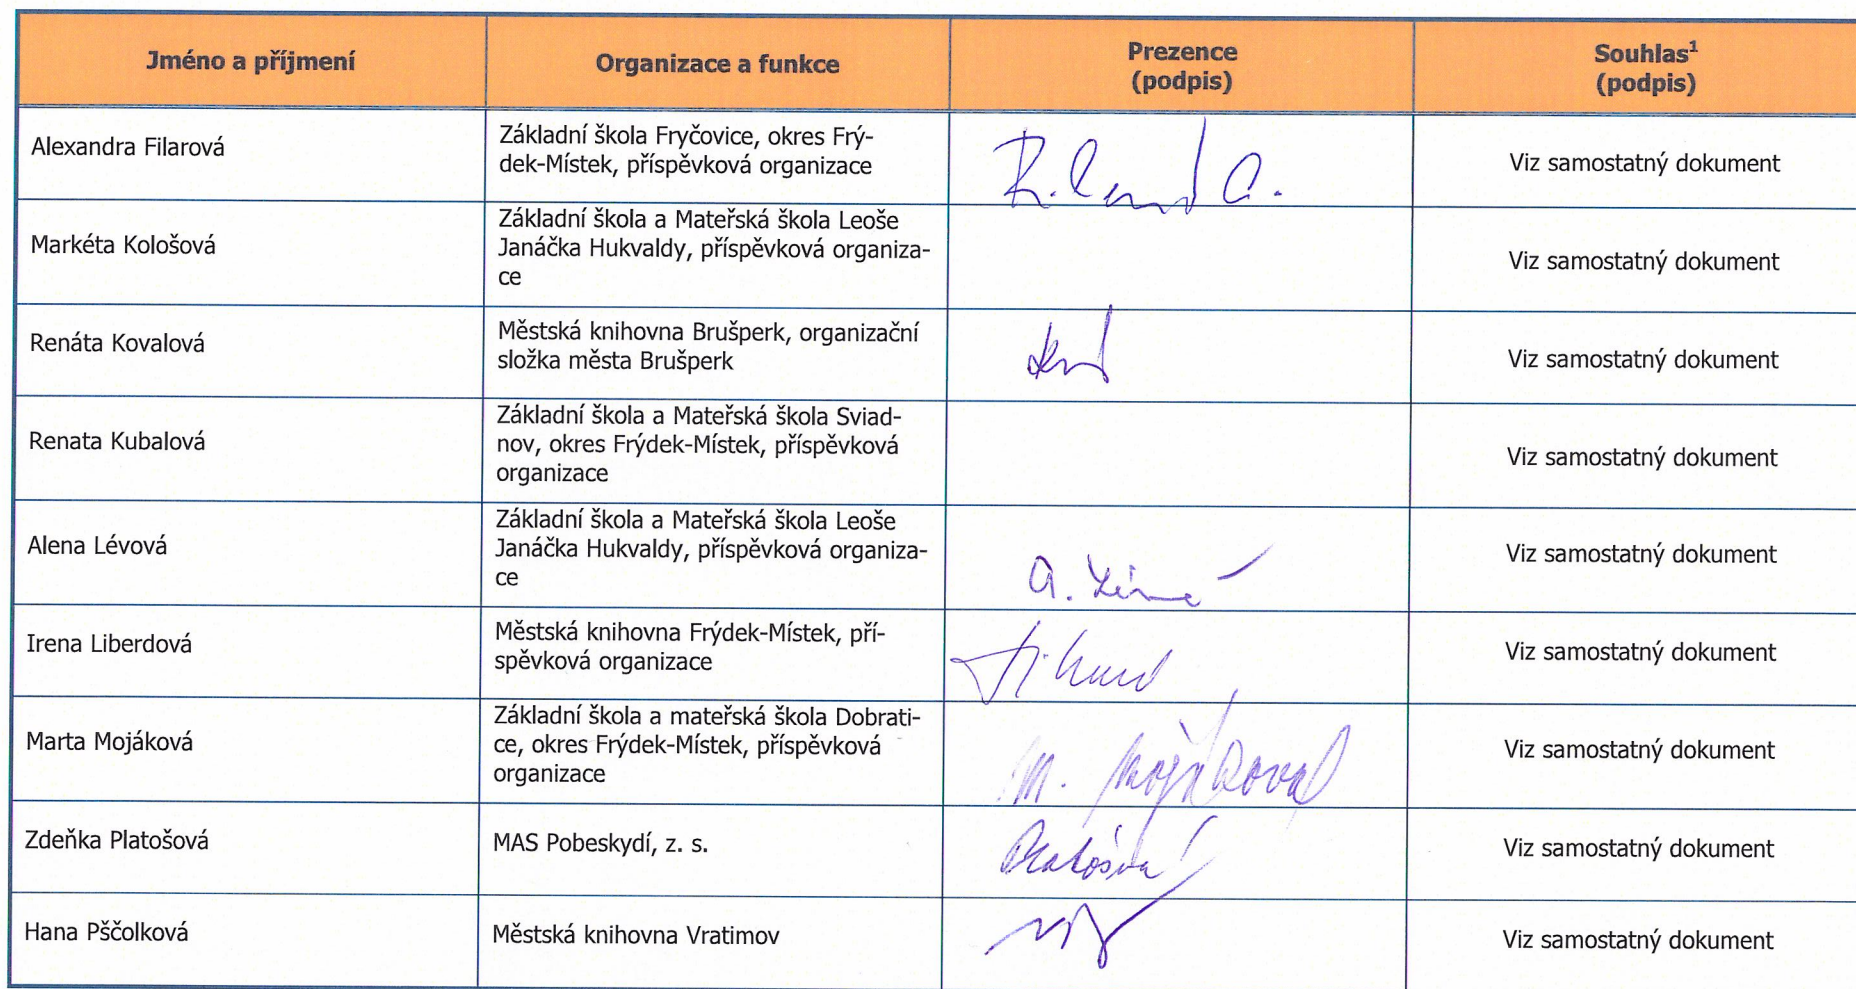 Jméno a příjmení
Organizace a funkce
Prezence
(podpis)
Souhlas¹
(podpis)
Alexandra Filarová
Základní škola Fryčovice, okres Frý-
dek-Místek, příspěvková organizace
Viz samostatný dokument
Markéta Kološová
Základní škola a Mateřská škola Leoše
Janáčka Hukvaldy, příspěvková organiza-
ce
Viz samostatný dokument
Renáta Kovalová
Městská knihovna Brušperk, organizační
složka města Brušperk
Viz samostatný dokument
Renata Kubalová
Základní škola a Mateřská škola Sviad-
nov, okres Frýdek-Místek, příspěvková
organizace
Viz samostatný dokument
Alena Lévová
Základní škola a Mateřská škola Leoše
Janáčka Hukvaldy, příspěvková organiza-
ce
Viz samostatný dokument
Irena Liberdová
Městská knihovna Frýdek-Místek, pří-
spěvková organizace
Viz samostatný dokument
Marta Mojáková
Základní škola a mateřská škola Dobrati-
ce, okres Frýdek-Místek, příspěvková
organizace
M. Mojáková
Viz samostatný dokument
Zdeňka Platošová
MAS Pobeskydí, z. s.
Platošová
Viz samostatný dokument
Hana Pščolková
Městská knihovna Vratimov
Viz samostatný dokument